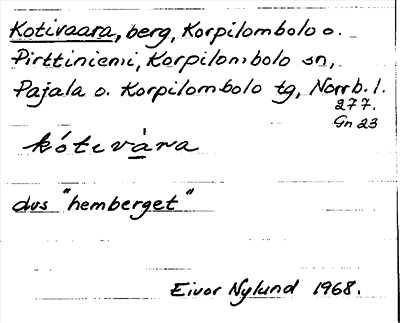 Kotivaara, berg, Korpilombolo o.
Pirttiniemi, Korpilombolo sn,
Pajala o. Korpilombolo tg, Norrb. l.
277.
Gn 23
kótivàra
dvs "hemberget"
Eivor Nylund 1968.